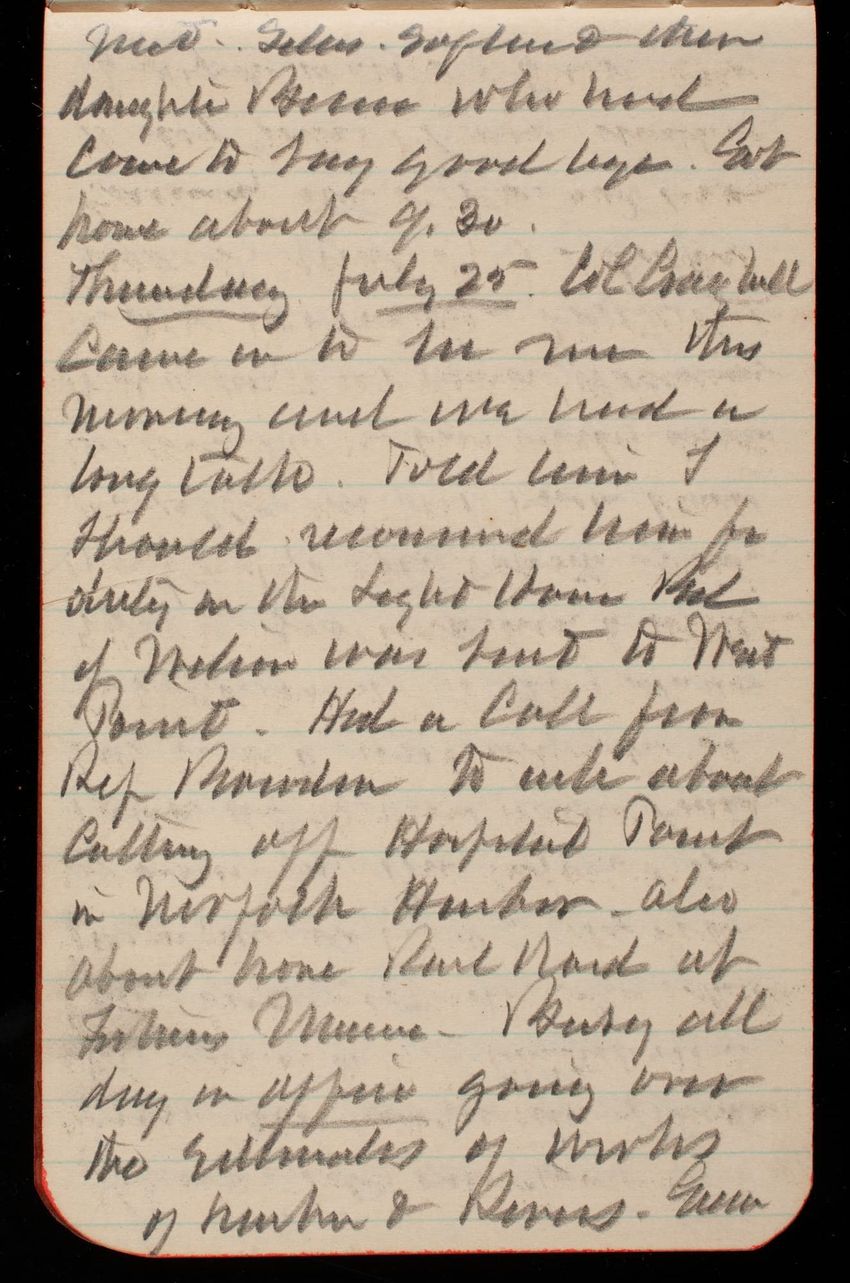 daughter who had
Come to say good bye. Got
home about 9.30.
Thursday July 25. Col Craighill
Came in to see me this
morning and we had a
long talk. Told him I
should recommend him for
duty on the Light House Bd
if Wilson was sent to West
Point. Had a Call from
Rep Bowden to ask about
Cutting off Hospital Point
in Norfolk Harbor. also
about horse Rail Road at
Fortress Monroe. Busy all
day in office going over
the Estimates of works
of harbor & Rivers.